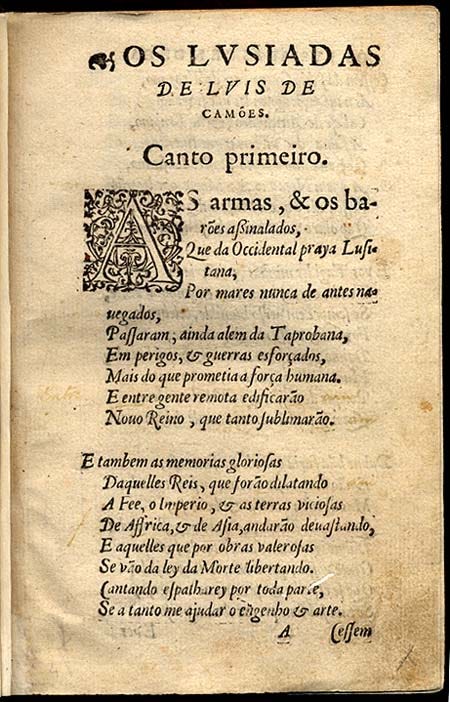 OS LVSIADAS
DE LVIS DE
CAMÕES.
Canto primeiro.
AS armas, & os ba-
rões aßinalados,
Que da Occidental praya Lusi-
tana,
Por mares nunca de antes na-
uegados,
Passaram, ainda alem da Taprobana,
Em perigos, & guerras esforçados,
Mais do que prometia a força humana.
E entre gente remota edificarão
Nouo Reino, que tanto sublimarão.
E tambem as memorias gloriosas
Daquelles Reis, que forão dilatando
A Fee, o Imperio, & as terras viciosas
De Affrica, & de Asia, andarão deuastando,
E aquelles que por obras valerosas
Se vão da ley da Morte libertando.
Cantando espalharey por toda parte,
Se a tanto me ajudar o engenho & arte.
A Cessem